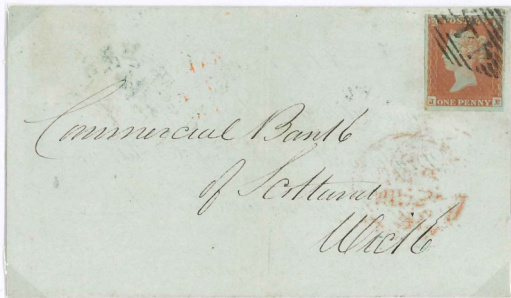 POSTAGE
ONE PENNY
Commercial Bank
of Scotland
Wick